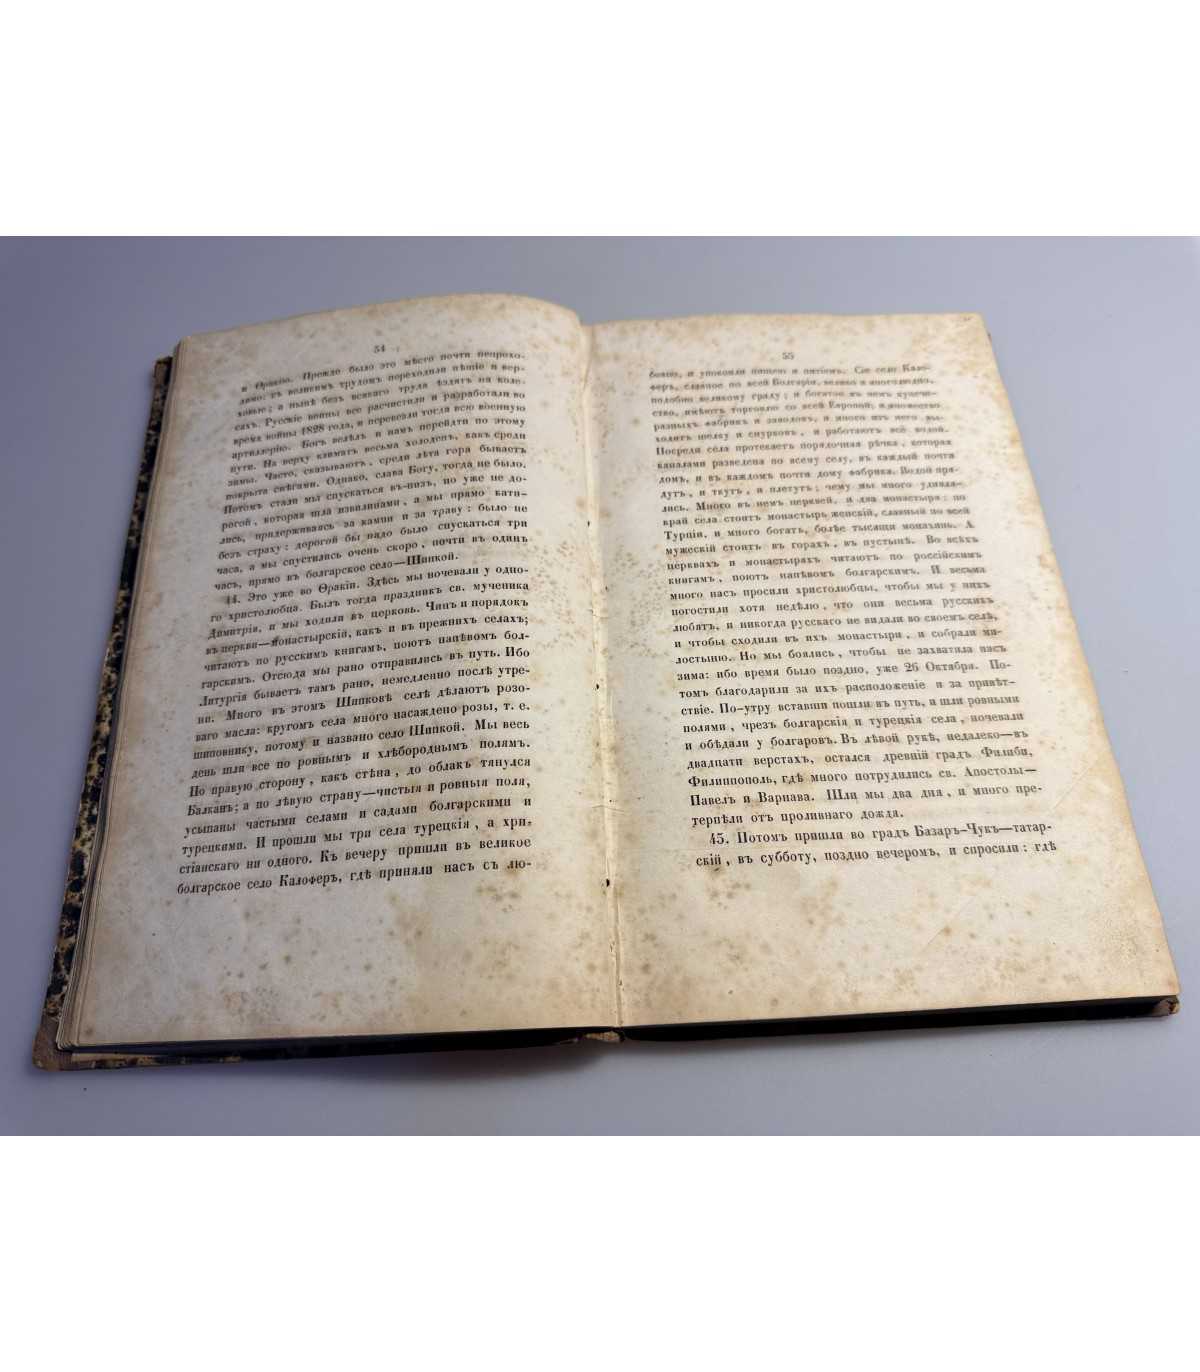 54
и Ѳракію. Прежде было это мѣсто почти непрохо-
димо: съ великимъ трудомъ переходили пѣшіе и вер-
ховые; а нынѣ безъ всякаго труда ѣздятъ на коле-
сахъ. Русскіе воины все расчистили и разработали во
время войны 1828 года, и перевезли тогда всю военную
артиллерію. Богъ велѣлъ и намъ перейдти по этому
пути. На верху климатъ весьма холоденъ, какъ среди
зимы. Часто, сказываютъ, среди лѣта гора бываетъ
покрыта снѣгами. Однако, слава Богу, тогда не было.
Потомъ стали мы спускаться въ-низъ, но уже не до-
рогой, которая шла извилинами, а мы прямо кати-
лись, придерживаясь за камни и за траву: было не
безъ страху: дорогой бы надо было спускаться три
часа, а мы спустились очень скоро, почти въ одинъ
часъ, прямо въ болгарское село—Шипкой.
44. Это уже во Ѳракіи. Здѣсь мы ночевали у одно-
го христолюбца. Былъ тогда праздникъ св. мученика
Димитрія, и мы ходили въ церковь. Чинъ и порядокъ
въ церкви—монастырскій, какъ и въ прежнихъ селахъ;
читаютъ по русскимъ книгамъ, поютъ напѣвомъ бол-
гарскимъ. Отсюда мы рано отправились въ путь. Ибо
Литургія бываетъ тамъ рано, немедленно послѣ утре-
ни. Много въ этомъ Шипковѣ селѣ дѣлаютъ розо-
ваго масла: кругомъ села много насаждено розы, т. е.
шиповнику, потому и названо село Шипкой. Мы весь
день шли все по ровнымъ и хлѣбороднымъ полямъ.
По правую сторону, какъ стѣна, до облакъ тянулся
Балканъ; а по лѣвую страну—чистыя и ровныя поля,
усыпаны частыми селами и садами болгарскими и
турецкими. И прошли мы три села турецкія, а хри-
стіанскаго ни одного. Къ вечеру пришли въ великое
болгарское село Калоферъ, гдѣ приняли насъ съ лю-
55
бовію, и упокоили пищею и питіемъ. Сіе село Кало-
феръ, славное по всей Болгаріи, велико и многолюдно,
подобно великому граду; и богатое въ немъ купече-
ство, имѣютъ торговлю со всей Европой; и множество
разныхъ фабрикъ и заводовъ, и много изъ него вы-
ходитъ шелку и снурковъ, и работаютъ всё водой.
Посреди села протекаетъ порядочная рѣчка, которая
каналами разведена по всему селу, въ каждый почти
домъ, и въ каждомъ почти дому фабрика. Водой пря-
дутъ, и ткутъ, и плетутъ; чему мы много удивля-
лись. Много въ немъ церквей, и два монастыря: по
край села стоитъ монастырь женскій, славный по всей
Турціи, и много богатъ, болѣе тысящи монахинь. А
мужескій стоитъ въ горахъ, въ пустынѣ. Во всѣхъ
церквахъ и монастыряхъ читаютъ по россійскимъ
книгамъ, поютъ напѣвомъ болгарскимъ. И весьма
много насъ просили христолюбцы, чтобы мы у нихъ
погостили хотя недѣлю, что они весьма русскихъ
любятъ, и никогда русскаго не видали во своемъ селѣ,
и чтобы сходили въ ихъ монастыри, и собрали ми-
лостыню. Но мы боялись, чтобы не захватила насъ
зима: ибо время было поздно, уже 26 Октября. По-
томъ благодарили за ихъ расположеніе и за привѣт-
ствіе. По-утру вставши пошли въ путь, и шли ровными
полями, чрезъ болгарскія и турецкія села, ночевали
и обѣдали у болгаровъ. Въ лѣвой рукѣ, недалеко—въ
двадцати верстахъ, остался древній градъ Филиби,
Филиппополь, гдѣ много потрудились св. Апостолы—
Павелъ и Варнава. Шли мы два дня, и много пре-
терпѣли отъ проливнаго дождя.
45. Потомъ пришли во градъ Базаръ-Чукъ—татар-
скій, въ субботу, поздно вечеромъ, и спросили: гдѣ